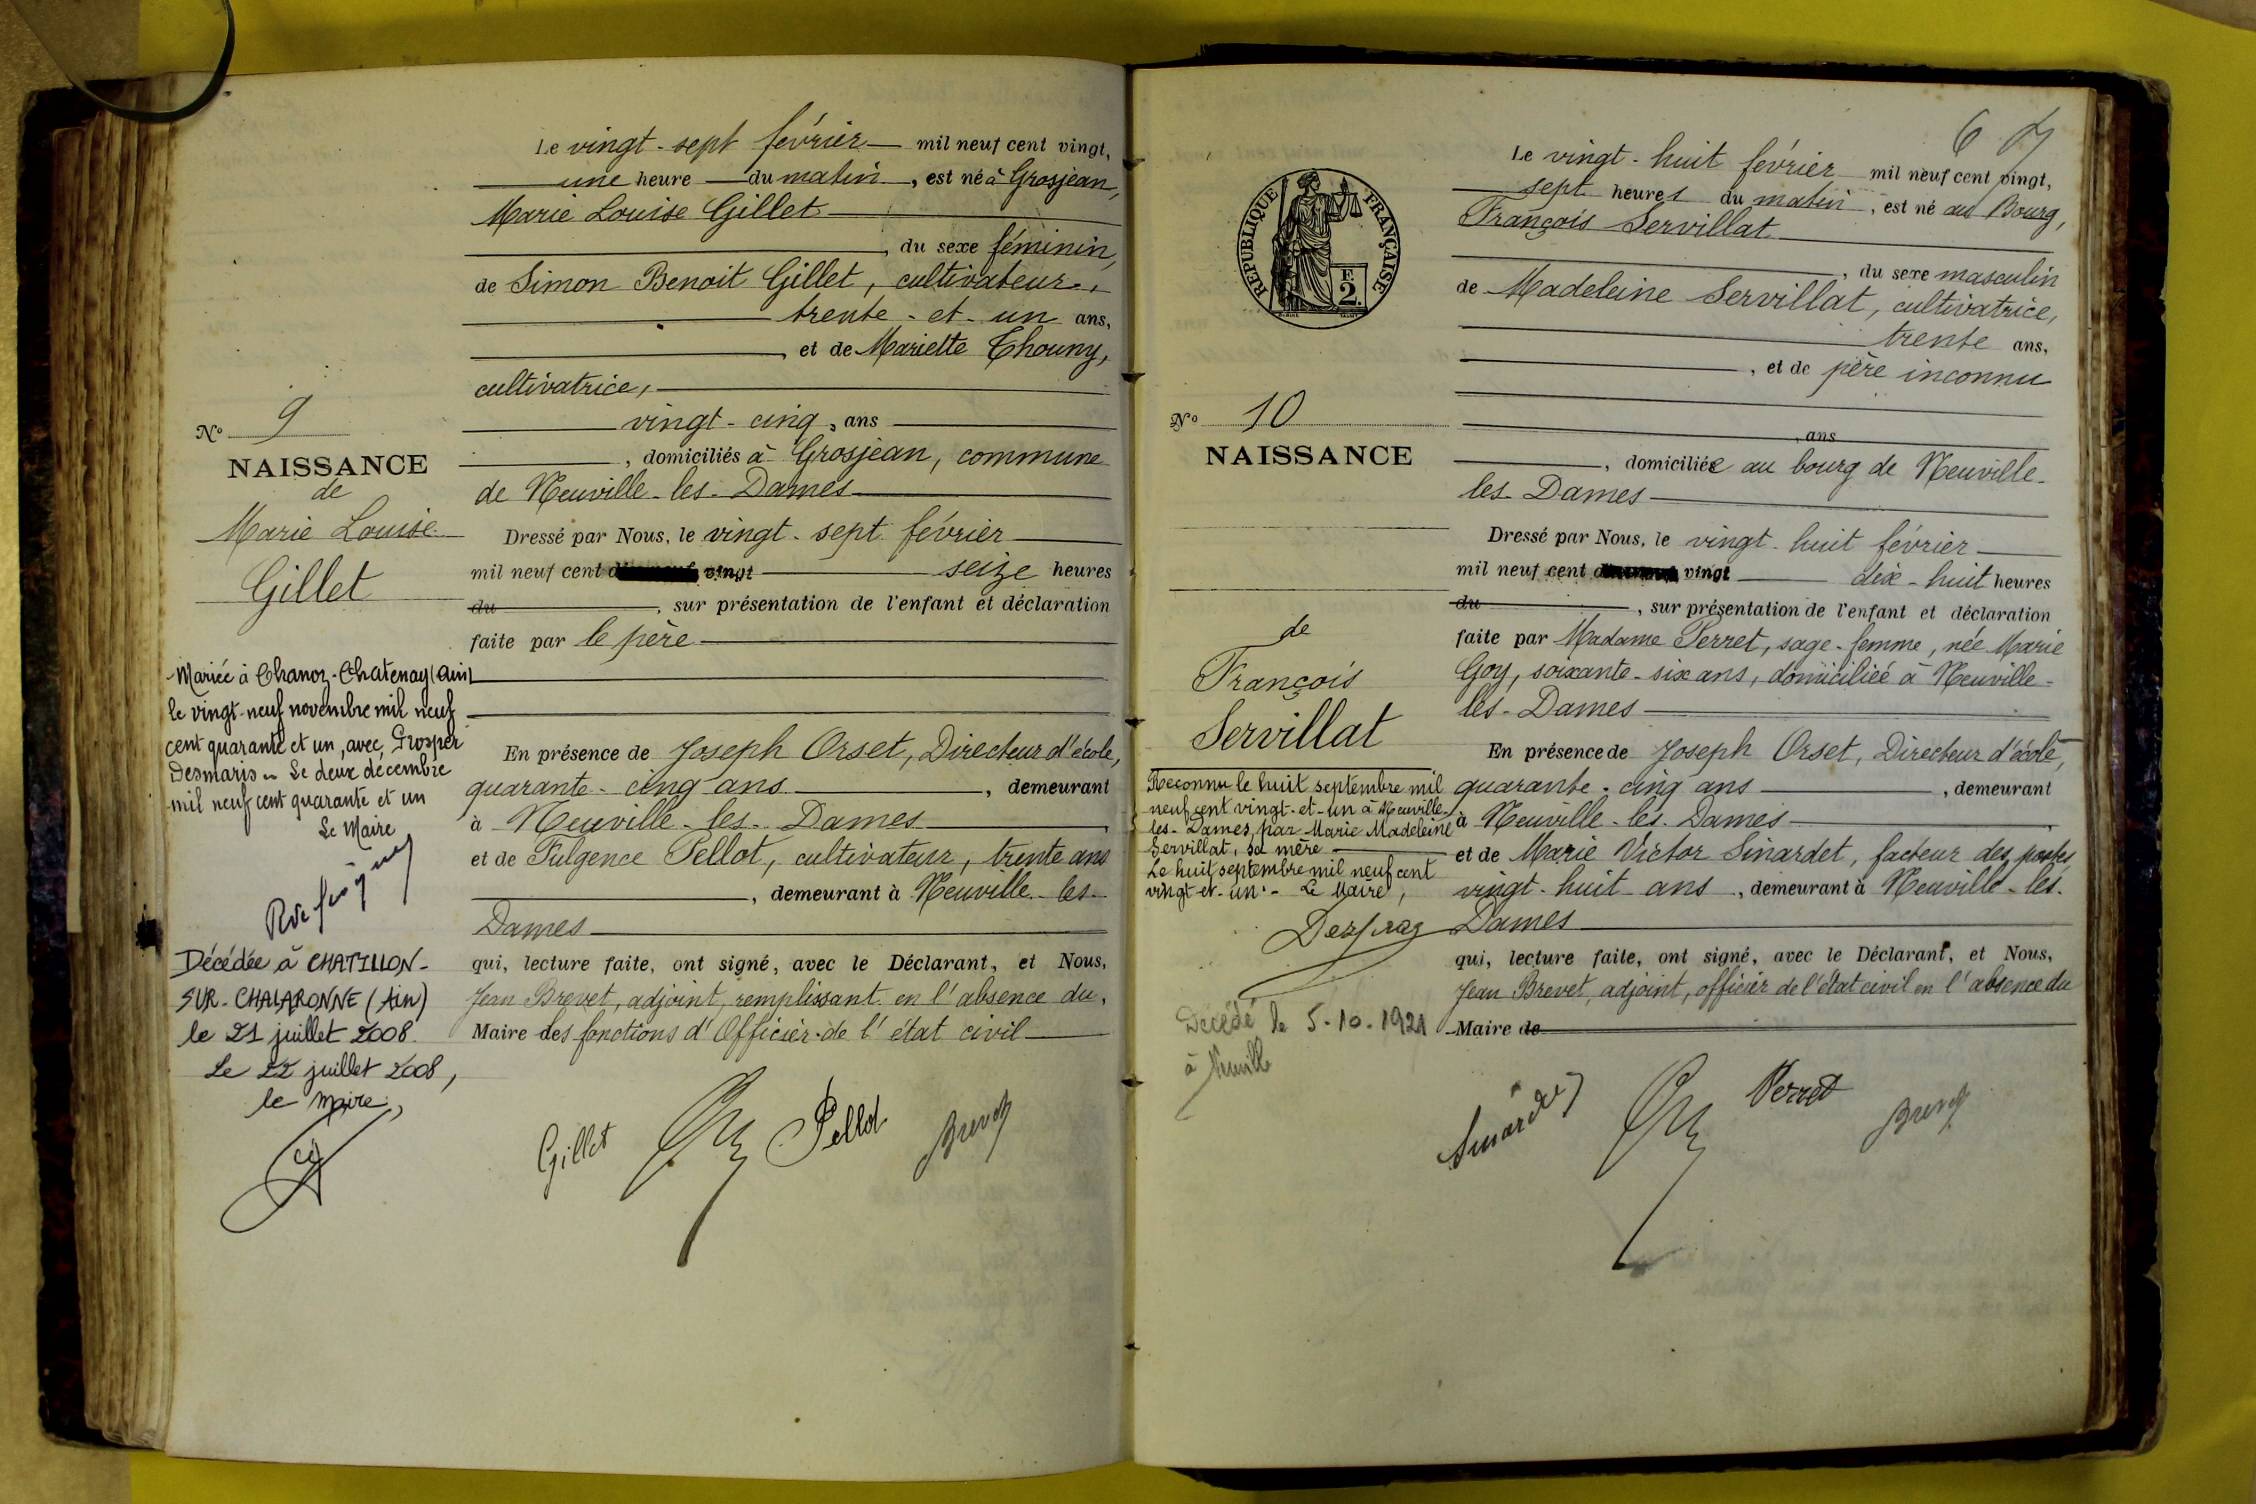 Le vingt-sept février mil neuf cent vingt,
une heure du matin, est né à Grosjean,
Marie Louise Gillet
, du sexe féminin,
de Simon Benoit Gillet, cultivateur,
trente-et-un ans,
, et de Mariette Thouny,
cultivatrice,
vingt-cinq, ans
, domiciliés à Grosjean, commune
de Neuville-les-Dames
Dressé par Nous, le vingt-sept février
mil neuf cent vingt seize heures
du, sur présentation de l'enfant et déclaration
faite par le père
En présence de Joseph Orset, Directeur d'école,
quarante-cinq ans, demeurant
à Neuville-les-Dames,
et de Fulgence Pellot, cultivateur, trente ans
, demeurant à Neuville-les-
Dames
qui, lecture faite, ont signé, avec le Déclarant, et Nous,
Jean Brevet, adjoint, remplissant en l'absence du
Maire des fonctions d'Officier de l'état civil
Gillet Pellot Brevet
No 9
NAISSANCE
de
Marie Louise
Gillet
Mariée à Chanoz-Chatenay (Ain)
le vingt-neuf novembre mil neuf
cent quarante et un, avec Prosper
Desmaris - Le deux décembre
mil neuf cent quarante et un
Le Maire
Décédée à CHATILLON-
SUR-CHALARONNE (Ain)
le 21 juillet 2008.
Le 22 juillet 2008,
le maire,
6
REPUBLIQUE FRANÇAISE
E
2.
No 10
NAISSANCE
de
François
Servillat
Reconnu le huit septembre mil
neuf cent vingt-et-un à Neuville-
les-Dames, par Marie Madeleine
Servillat, sa mère
Le huit septembre mil neuf cent
vingt-et-un. - Le Maire,
Décédé le 5-10-1921
à Neuville
Le vingt-huit février mil neuf cent vingt,
sept heures du matin, est né au Bourg,
François Servillat
, du sexe masculin
de Madeleine Servillat, cultivatrice,
trente ans,
, et de père inconnu
, ans
, domiciliée au bourg de Neuville-
les-Dames
Dressé par Nous, le vingt-huit février
mil neuf cent vingt dix-huit heures
du, sur présentation de l'enfant et déclaration
faite par Madame Perret, sage-femme, née Marie
Goy, soixante-six ans, domiciliée à Neuville-
les-Dames
En présence de Joseph Orset, Directeur d'école,
quarante-cinq ans, demeurant
à Neuville-les-Dames,
et de Marie Victor Sinardet, facteur des postes
vingt-huit ans, demeurant à Neuville-les-
Dames
qui, lecture faite, ont signé, avec le Déclarant, et Nous,
Jean Brevet, adjoint, officier de l'état civil en l'absence du
Maire de
Sinardet Perret Brevet